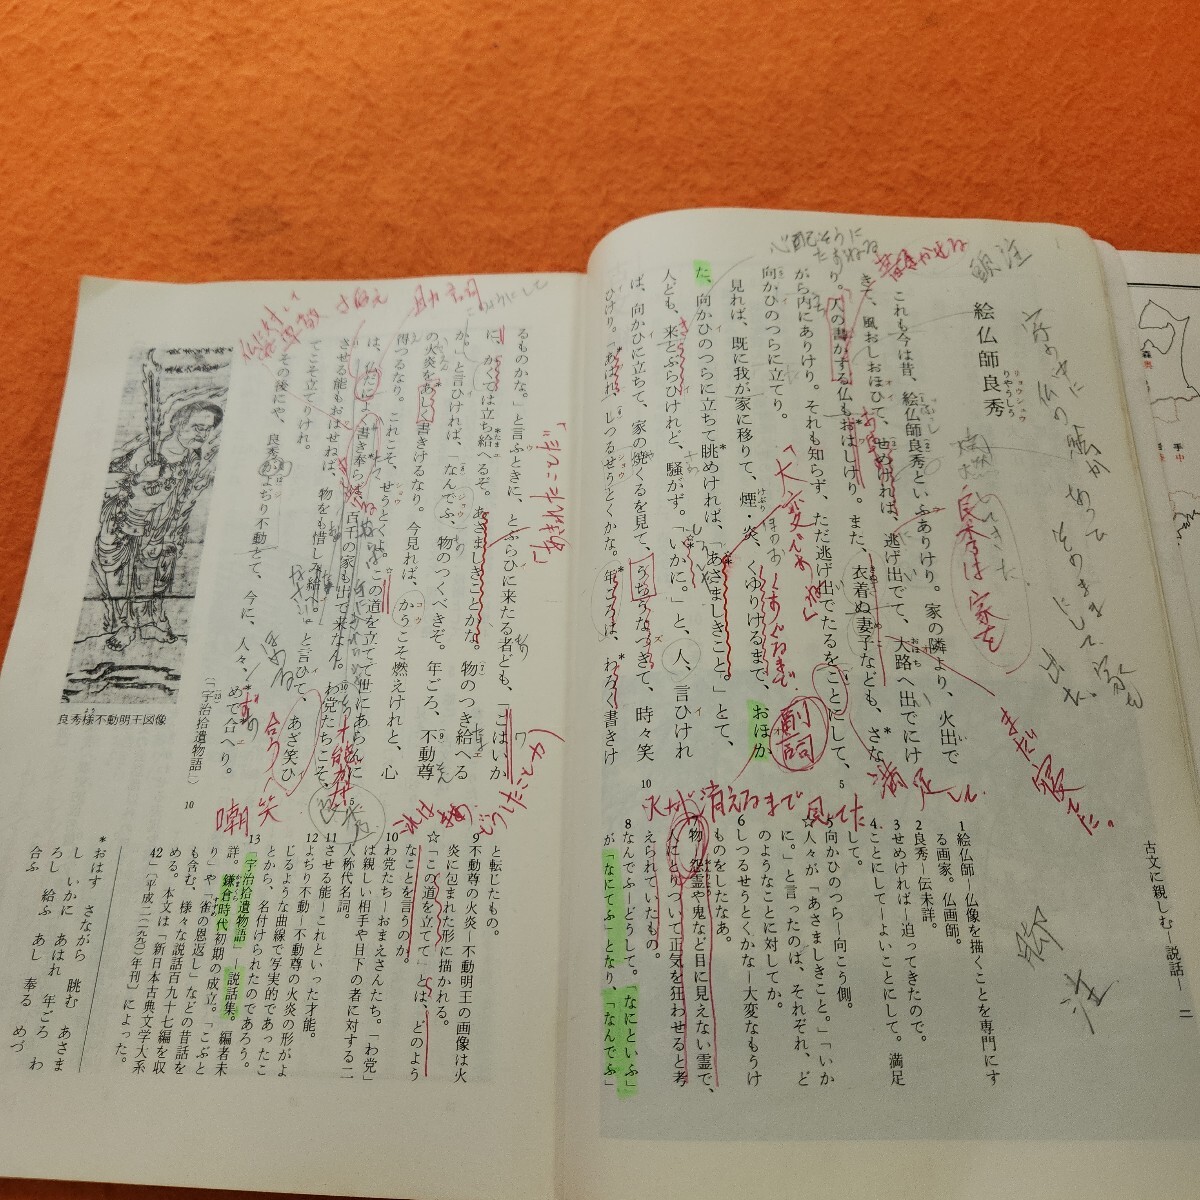 古文に親しむ―説話― 二
絵仏師良秀
これも今は昔、絵仏師良秀といふありけり。家の隣より、火出で
きて、風おしおほひて、せめければ、逃げ出でて、大路へ出でにけ
り。人の書かする仏もおはしけり。また、衣着ぬ妻子なども、さな
がら内にありけり。それも知らず、ただ逃げ出でたるをことにして、
向かひのつらに立てり。
見れば、既に我が家に移りて、煙・炎、くゆりけるまで、おほか
た、向かひのつらに立ちて眺めければ、「あさましきこと。」とて、
人ども、来とぶらひけれど、騒がず。「いかに。」と、人、言ひけれ
ば、向かひに立ちて、家の焼くるを見て、うちうなづきて、時々笑
ひけり。「あはれ、しつるせうとくかな。年ごろは、わろく書きけ
るものかな。」と言ふときに、とぶらひに来たる者ども、「こはいか
に、かくては立ち給へるぞ。あさましきことかな。物のつき給へる
か。」と言ひければ、「なんでふ、物のつくべきぞ。年ごろ、不動尊
の火炎をあしく書きけるなり。今見れば、かうこそ燃えけれと、心
得つるなり。これこそ、せうとくよ。この道を立てて世にあらんに
は、仏だによく書き奉らば、百千の家も出で来なん。わ党たちこそ、
させる能もおはせねば、物をも惜しみ給へ。」と言ひて、あざ笑ひ
てこそ立てりけれ。
その後にや、良秀がよぢり不動とて、今に、人々、めで合へり。
(「宇治拾遺物語」)
5
10
5
10
良秀様不動明王図像
1絵仏師―仏像を描くことを専門にす
る画家。仏画師。
2良秀―伝未詳。
3せめければ―迫ってきたので。
4ことにして―よいことにして。満足
して。
5向かひのつら―向こう側。
☆人々が「あさましきこと。」「いか
に。」と言ったのは、それぞれ、ど
のようなことに対してか。
6しつるせうとくかな―大変なもうけ
ものをしたなあ。
7物―怨霊や鬼など目に見えない霊で、
人にとりついて正気を狂わせると考
えられていたもの。
8なんでふ―どうして。「なにといふ」
が「なにてふ」となり、「なんでふ」
と転じたもの。
9不動尊の火炎―不動明王の画像は火
炎に包まれた形に描かれる。
☆「この道を立てて」とは、どのよう
なことを言うのか。
10わ党たち―おまえさんたち。「わ党」
は親しい相手や目下の者に対する二
人称代名詞。
11させる能―これといった才能。
12よぢり不動―不動尊の火炎の形がよ
じるような曲線で写実的であったこ
とから、名付けられたのであろう。
13「宇治拾遺物語」―説話集。編者未
詳。鎌倉時代初期の成立。「こぶと
り」や「雀の恩返し」などの昔話を
も含む、様々な説話百九十七編を収
める。本文は「新日本古典文学大系
42」〔平成二(一九九〇)年刊〕によった。
*おはす さながら 眺む あさま
し いかに あはれ 年ごろ わ
ろし 給ふ あし 奉る めづ
合ふ
頭注
脚注
心配そうに
たずねる
良秀は家を
「大変だわね」
副詞
火が消えるまで見てた
満足した
まだ家で。
助詞
嘲笑
才能がない